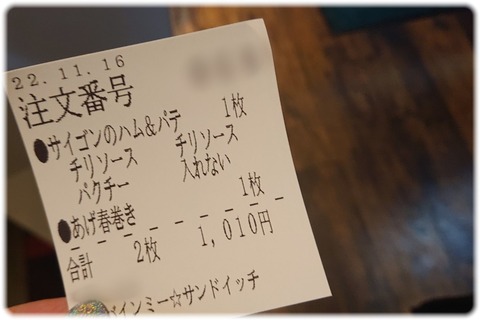 22.11.16
注文番号
●サイゴンのハム&パテ 1枚
チリソース チリソース
パクチー 入れない
●あげ春巻き 1枚
合計 2枚 1,010円
バインミー☆サンドイッチ